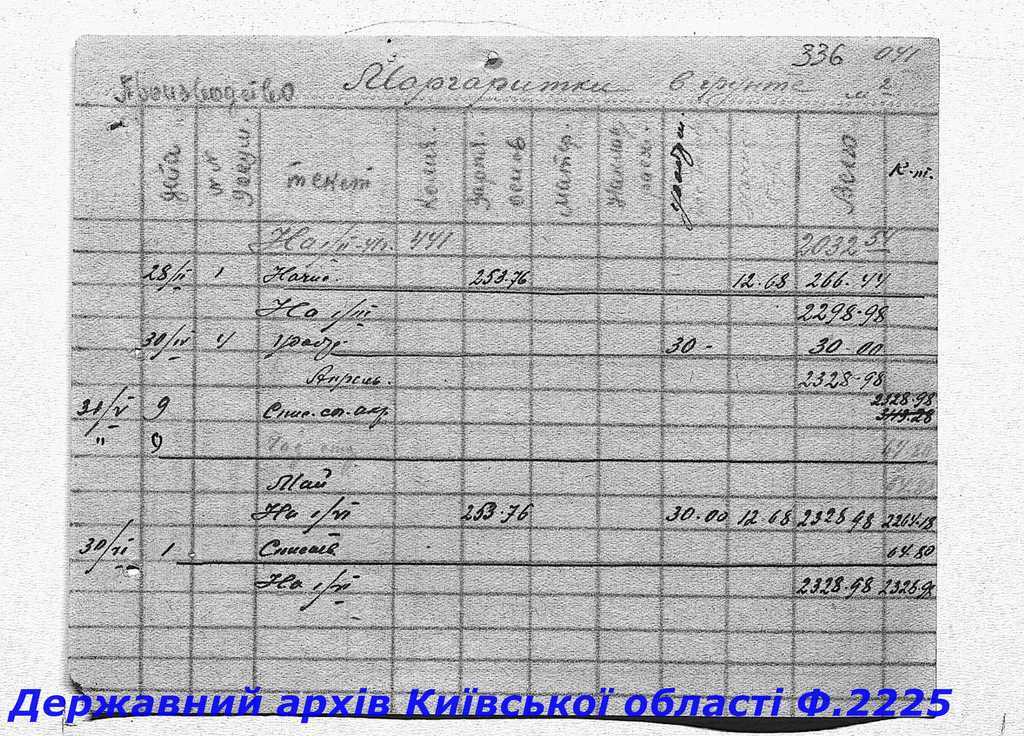 336 041
Производство Маргаритки в грунте м2
Дата №№ Докум. текст Колич. Зарпл. основ Матер. удобр. Всего К-т.
На 1/II-41. 441 2032 54
28/II 1 Начис. 253.76 12.68 266.44
На 1/III 2298-98
30/IV 4 удобр. 30- 30-00
Апрель. 2328-98
31/V 9 Спис. сп. акр. 2328.98
" 9 64.80
Май
На 1/VI 253-76 30.00 12.68 2328 98 2264.18
30/VI 1 Списать 64.80
На 1/VI 2328.98 2328.98
Державний архів Київської області Ф.2225